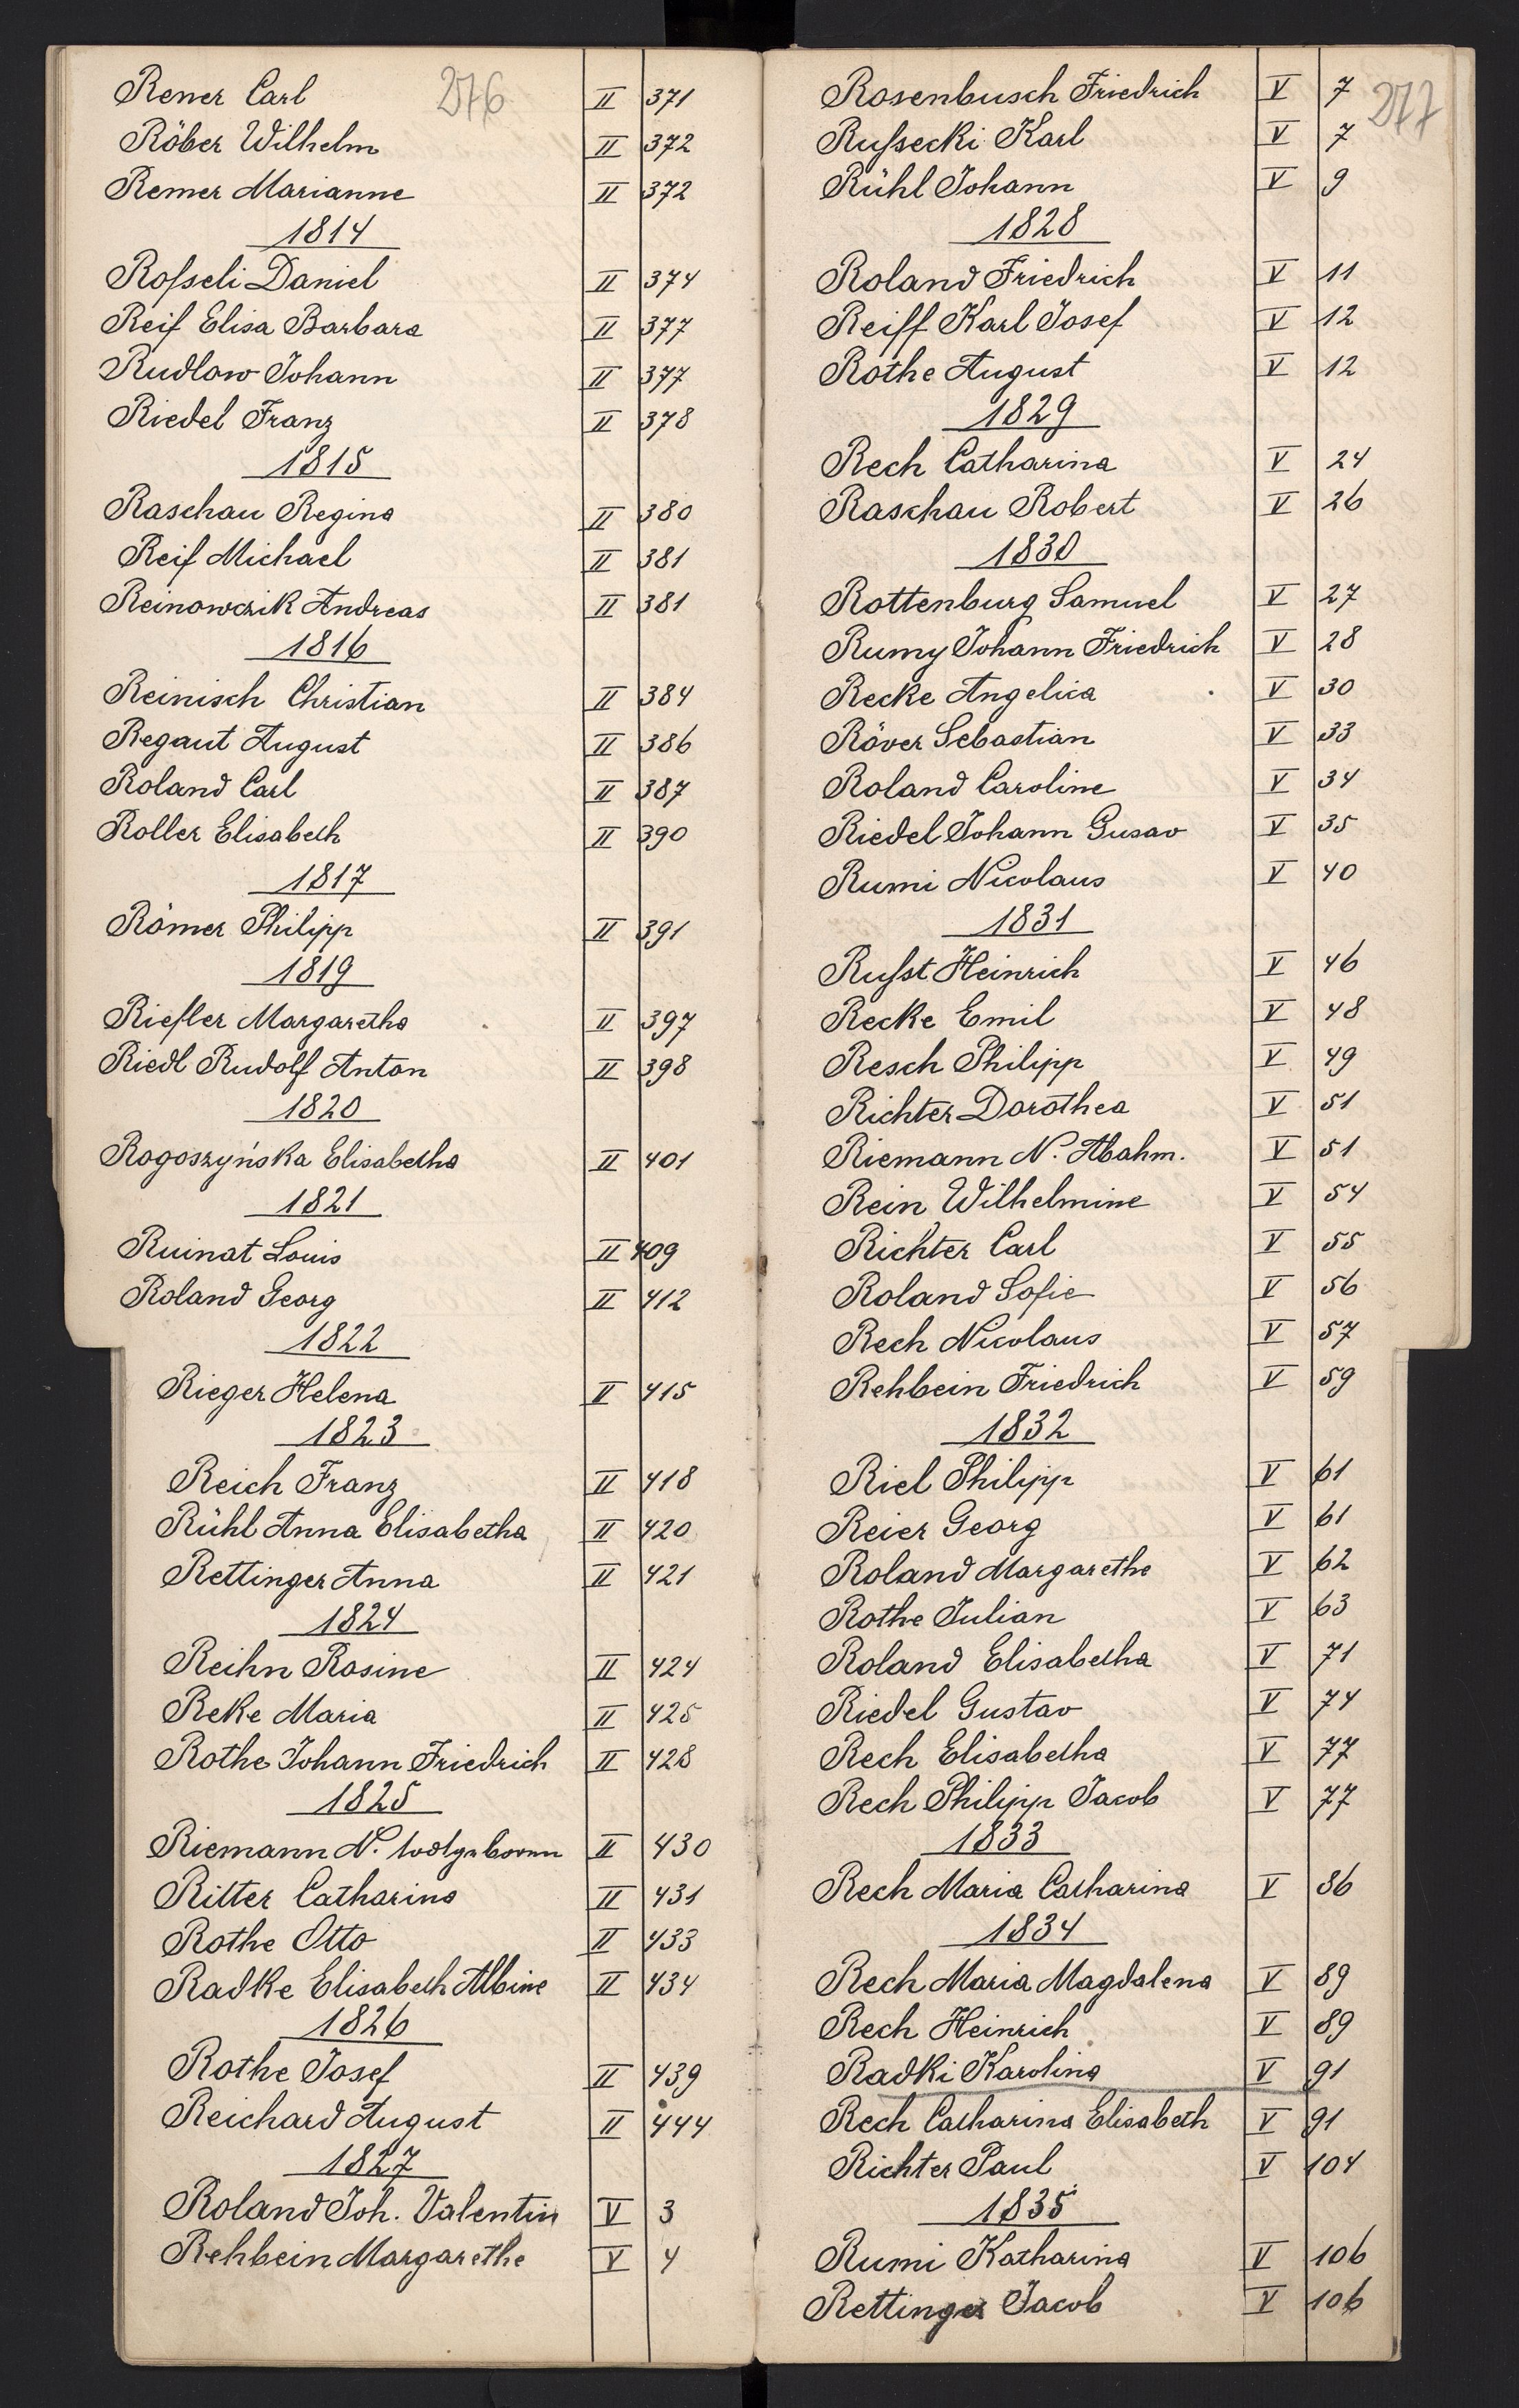 276
Rener Carl II 371
Röber Wilhelm II 372
Remer Marianne II 372
1814
Roſseli Daniel II 374
Reif Elisa Barbara II 377
Rudlow Johann II 377
Riedel Franz II 378
1815
Raschau Regina II 380
Reif Michael II 381
Reinowczik Andreas II 381
1816
Reinisch Christian II 384
Regaut August II 386
Roland Carl II 387
Roller Elisabeth II 390
1817
Römer Philipp II 391
1819
Riefler Margaretha II 397
Riedl Rudolf Anton II 398
1820
Rogoszyńska Elisabetha II 401
1821
Ruinat Louis II 409
Roland Georg II 412
1822
Rieger Helena II 415
1823
Reich Franz II 418
Rühl Anna Elisabetha II 420
Rettinger Anna II 421
1824
Reihn Rosine II 424
Reke Maria II 425
Rothe Johann Friedrich II 428
1825
Riemann N. II 430
Ritter Catharina II 431
Rothe Otto II 433
Radke Elisabeth Albine II 434
1826
Rothe Josef II 439
Reichard August II 444
1827
Roland Joh. Valentin V 3
Rehbein Margarethe V 4
277
Rosenbusch Friedrich V 7
Ruſsecki Karl V 7
Rühl Johann V 9
1828
Roland Friedrich V 11
Reiff Karl Josef V 12
Rothe August V 12
1829
Rech Catharina V 24
Raschau Robert V 26
1830
Rottenburg Samuel V 27
Rumy Johann Friedrich V 28
Recke Angelica V 30
Röver Sebastian V 33
Roland Caroline V 34
Riedel Johann Gusav V 35
Rumi Nicolaus V 40
1831
Ruſst Heinrich V 46
Recke Emil V 48
Resch Philipp V 49
Richter Dorothea V 51
Riemann N. Abahm. V 51
Rein Wilhelmine V 54
Richter Carl V 55
Roland Sofie V 56
Rech Nicolaus V 57
Rehbein Friedrich V 59
1832
Riel Philipp V 61
Reier Georg V 61
Roland Margarethe V 62
Rothe Julian V 63
Roland Elisabetha V 71
Riedel Gustav V 74
Rech Elisabetha V 77
Rech Philipp Jacob V 77
1833
Rech Maria Catharina V 86
1834
Rech Maria Magdalena V 89
Rech Heinrich V 89
Radki Karolina V 91
Rech Catharina Elisabeth V 91
Richter Paul V 104
1835
Rumi Katharina V 106
Rettinger Jacob V 106